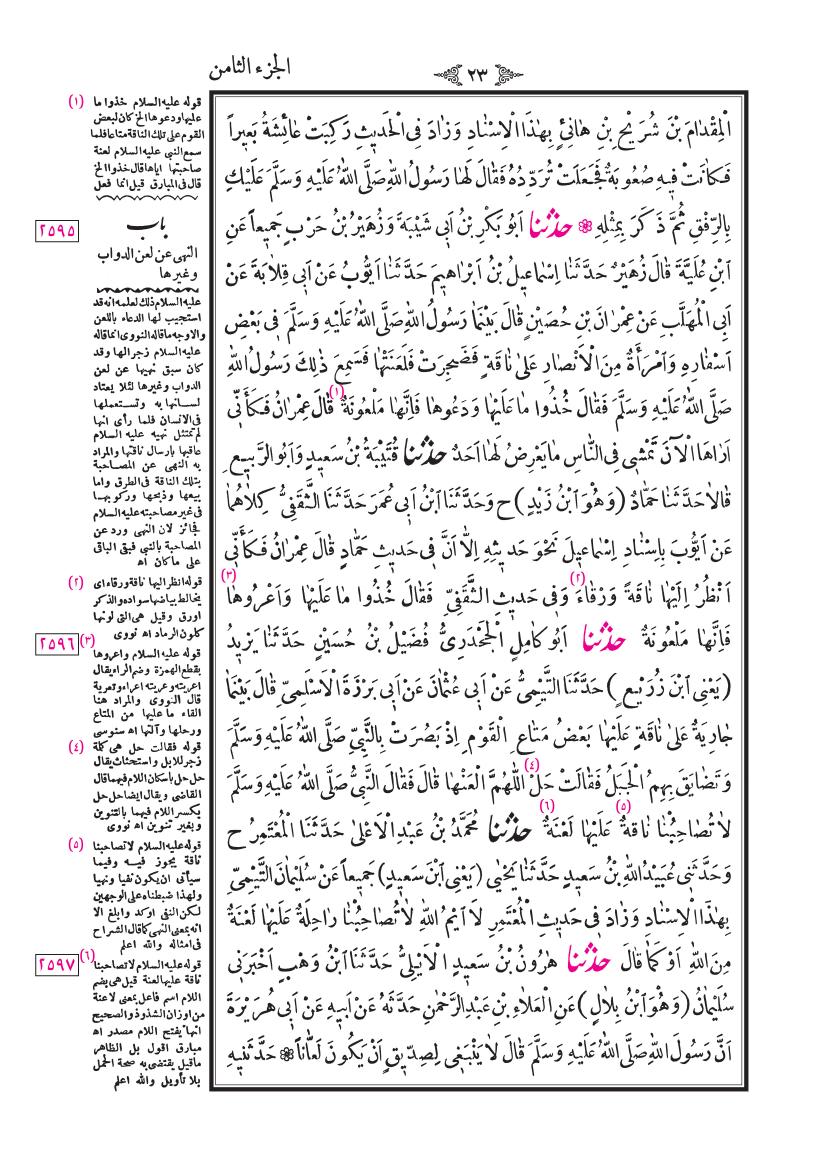 ٢٣
الجزء الثامن
الْمِقْدَامَ بْنَ شُرَيْحِ بْنِ هَانِئٍ بِهٰذَا الْاِسْنَادِ وَزَادَ فِى الْحَدِيثِ رَكِبَتْ عَائِشَةُ بَعِيراً
فَكَانَتْ فِيهِ صُعُوبَةٌ فَجَعَلَتْ تُرَدِّدُهُ فَقَالَ لَهَا رَسُولُ اللّٰهِ صَلَّى اللّٰهُ عَلَيْهِ وَسَلَّمَ عَلَيْكِ
بِالرِّفْقِ ثُمَّ ذَكَرَ بِمِثْلِهِ ❁ حدثنا اَبُو بَكْرِ بْنُ اَبِى شَيْبَةَ وَزُهَيْرُ بْنُ حَرْبٍ جَمِيعاً عَنِ
ابْنِ عُلَيَّةَ قَالَ زُهَيْرٌ حَدَّثَنَا اِسْمَاعِيلُ بْنُ اِبْرَاهِيمَ حَدَّثَنَا اَيُّوبُ عَنْ اَبِى قِلَابَةَ عَنْ
اَبِى الْمُهَلَّبِ عَنْ عِمْرَانَ بْنِ حُصَيْنٍ قَالَ بَيْنَمَا رَسُولُ اللّٰهِ صَلَّى اللّٰهُ عَلَيْهِ وَسَلَّمَ فِى بَعْضِ
اَسْفَارِهِ وَامْرَأَةٌ مِنَ الْاَنْصَارِ عَلٰى نَاقَةٍ فَضَجِرَتْ فَلَعَنَتْهَا فَسَمِعَ ذٰلِكَ رَسُولُ اللّٰهِ
صَلَّى اللّٰهُ عَلَيْهِ وَسَلَّمَ فَقَالَ خُذُوا مَا عَلَيْهَا وَدَعُوهَا فَاِنَّهَا مَلْعُونَةٌ (١) قَالَ عِمْرَانُ فَكَأَنِّى
اَرَاهَا الْآنَ تَمْشِى فِى النَّاسِ مَا يَعْرِضُ لَهَا اَحَدٌ حدثنا قُتَيْبَةُ بْنُ سَعِيدٍ وَاَبُو الرَّبِيعِ
قَالَا حَدَّثَنَا حَمَّادٌ (وَهُوَ ابْنُ زَيْدٍ) ح وَحَدَّثَنَا ابْنُ اَبِى عُمَرَ حَدَّثَنَا الثَّقَفِىُّ كِلَاهُمَا
عَنْ اَيُّوبَ بِاِسْنَادِ اِسْمَاعِيلَ نَحْوَ حَدِيثِهِ اِلَّا اَنَّ فِى حَدِيثِ حَمَّادٍ قَالَ عِمْرَانُ فَكَأَنِّى
اَنْظُرُ اِلَيْهَا نَاقَةً وَرْقَاءَ (٢) وَفِى حَدِيثِ الثَّقَفِىِّ فَقَالَ خُذُوا مَا عَلَيْهَا وَاَعْرُوهَا (٣)
فَاِنَّهَا مَلْعُونَةٌ حدثنا اَبُو كَامِلٍ الْجَحْدَرِىُّ فُضَيْلُ بْنُ حُسَيْنٍ حَدَّثَنَا يَزِيدُ
(يَعْنِى ابْنَ زُرَيْعٍ) حَدَّثَنَا التَّيْمِىُّ عَنْ اَبِى عُثْمَانَ عَنْ اَبِى بَرْزَةَ الْاَسْلَمِىِّ قَالَ بَيْنَمَا
جَارِيَةٌ عَلٰى نَاقَةٍ عَلَيْهَا بَعْضُ مَتَاعِ الْقَوْمِ اِذْ بَصُرَتْ بِالنَّبِىِّ صَلَّى اللّٰهُ عَلَيْهِ وَسَلَّمَ
وَتَضَايَقَ بِهِمُ الْجَبَلُ فَقَالَتْ حَلْ (٤) اللّٰهُمَّ الْعَنْهَا قَالَ فَقَالَ النَّبِىُّ صَلَّى اللّٰهُ عَلَيْهِ وَسَلَّمَ
لَا تُصَاحِبُنَا نَاقَةٌ (٥) عَلَيْهَا لَعْنَةٌ (٦) حدثنا مُحَمَّدُ بْنُ عَبْدِ الْاَعْلٰى حَدَّثَنَا الْمُعْتَمِرُ ح
وَحَدَّثَنِى عُبَيْدُ اللّٰهِ بْنُ سَعِيدٍ حَدَّثَنَا يَحْيٰى (يَعْنِى ابْنَ سَعِيدٍ) جَمِيعاً عَنْ سُلَيْمَانَ التَّيْمِىِّ
بِهٰذَا الْاِسْنَادِ وَزَادَ فِى حَدِيثِ الْمُعْتَمِرِ لَا اَيْمُ اللّٰهِ لَا تُصَاحِبُنَا رَاحِلَةٌ عَلَيْهَا لَعْنَةٌ
مِنَ اللّٰهِ اَوْ كَمَا قَالَ حدثنا هٰرُونُ بْنُ سَعِيدٍ الْاَيْلِىُّ حَدَّثَنَا ابْنُ وَهْبٍ اَخْبَرَنِى
سُلَيْمَانُ (وَهُوَ ابْنُ بِلَالٍ) عَنِ الْعَلَاءِ بْنِ عَبْدِ الرَّحْمٰنِ حَدَّثَهُ عَنْ اَبِيهِ عَنْ اَبِى هُرَيْرَةَ
اَنَّ رَسُولَ اللّٰهِ صَلَّى اللّٰهُ عَلَيْهِ وَسَلَّمَ قَالَ لَا يَنْبَغِى لِصِدِّيقٍ اَنْ يَكُونَ لَعَّاناً ❁ حَدَّثَنِيهِ
(١) قوله عليه السلام خذوا ما
عليها ودعوها الخ كان لبعض
القوم على تلك الناقة متاعا فلما
سمع النبى عليه السلام لعنة
صاحبتها اياها قال خذوا الخ
قال فى المبارق قيل انما فعل
باب
٢٥٩٥
النهى عن لعن الدواب
وغيرها
عليه السلام ذلك لعلمه انه قد
استجيب لها الدعاء باللعن
والاوجه ما قاله النووى انما قاله
عليه السلام زجرا لها وقد
كان سبق نهيها عن لعن
الدواب وغيرها لئلا يعتاد
لسانها به وتستعملها
فى الانسان فلما رأى انها
لم تمتثل نهيه عليه السلام
عاقبها بارسال ناقتها والمراد
به النهى عن المصاحبة
بتلك الناقة فى الطرق واما
بيعها وذبحها وركوبها
فى غير مصاحبته عليه السلام
فجائز لان النهى ورد عن
المصاحبة بالنبى فبقى الباقى
على ما كان اه
(٢) قوله انظر اليها ناقة ورقاء اى
يخالط بياضها سواده والذكر
اورق وقيل هى التى لونها
كلون الرماد اه نووى
٢٥٩٦
(٣) قوله عليه السلام واعروها
بقطع الهمزة وضم الراء يقال
اعريته وعريته اعراء وتعرية
قال النووى والمراد هنا
القاء ما عليها من المتاع
ورحلها وآلتها اه سنوسى
(٤) قوله فقالت حل هى كلمة
زجر للابل واستحثاث يقال
حل حل باسكان اللام فيهما قال
القاضى ويقال ايضا حل حل
بكسر اللام فيهما بالتنوين
وبغير تنوين اه نووى
(٥) قوله عليه السلام لا تصاحبنا
ناقة يجوز فيه وفيما
سيأتى ان يكون نفيا ونهيا
ولهذا ضبطناه على الوجهين
لكن النفى اوكد وابلغ الا
انه بمعنى النهى كما قال الشراح
فى امثاله والله اعلم
٢٥٩٧
(٦) قوله عليه السلام لا تصاحبنا
ناقة عليها لعنة قيل هى بضم
اللام اسم فاعل بمعنى لاعنة
من اوزان الشذوذ والصحيح
انها بفتح اللام مصدر اه
مبارق اقول بل الظاهر
ما قيل يقتضى به صحة الحمل
بلا تأويل والله اعلم